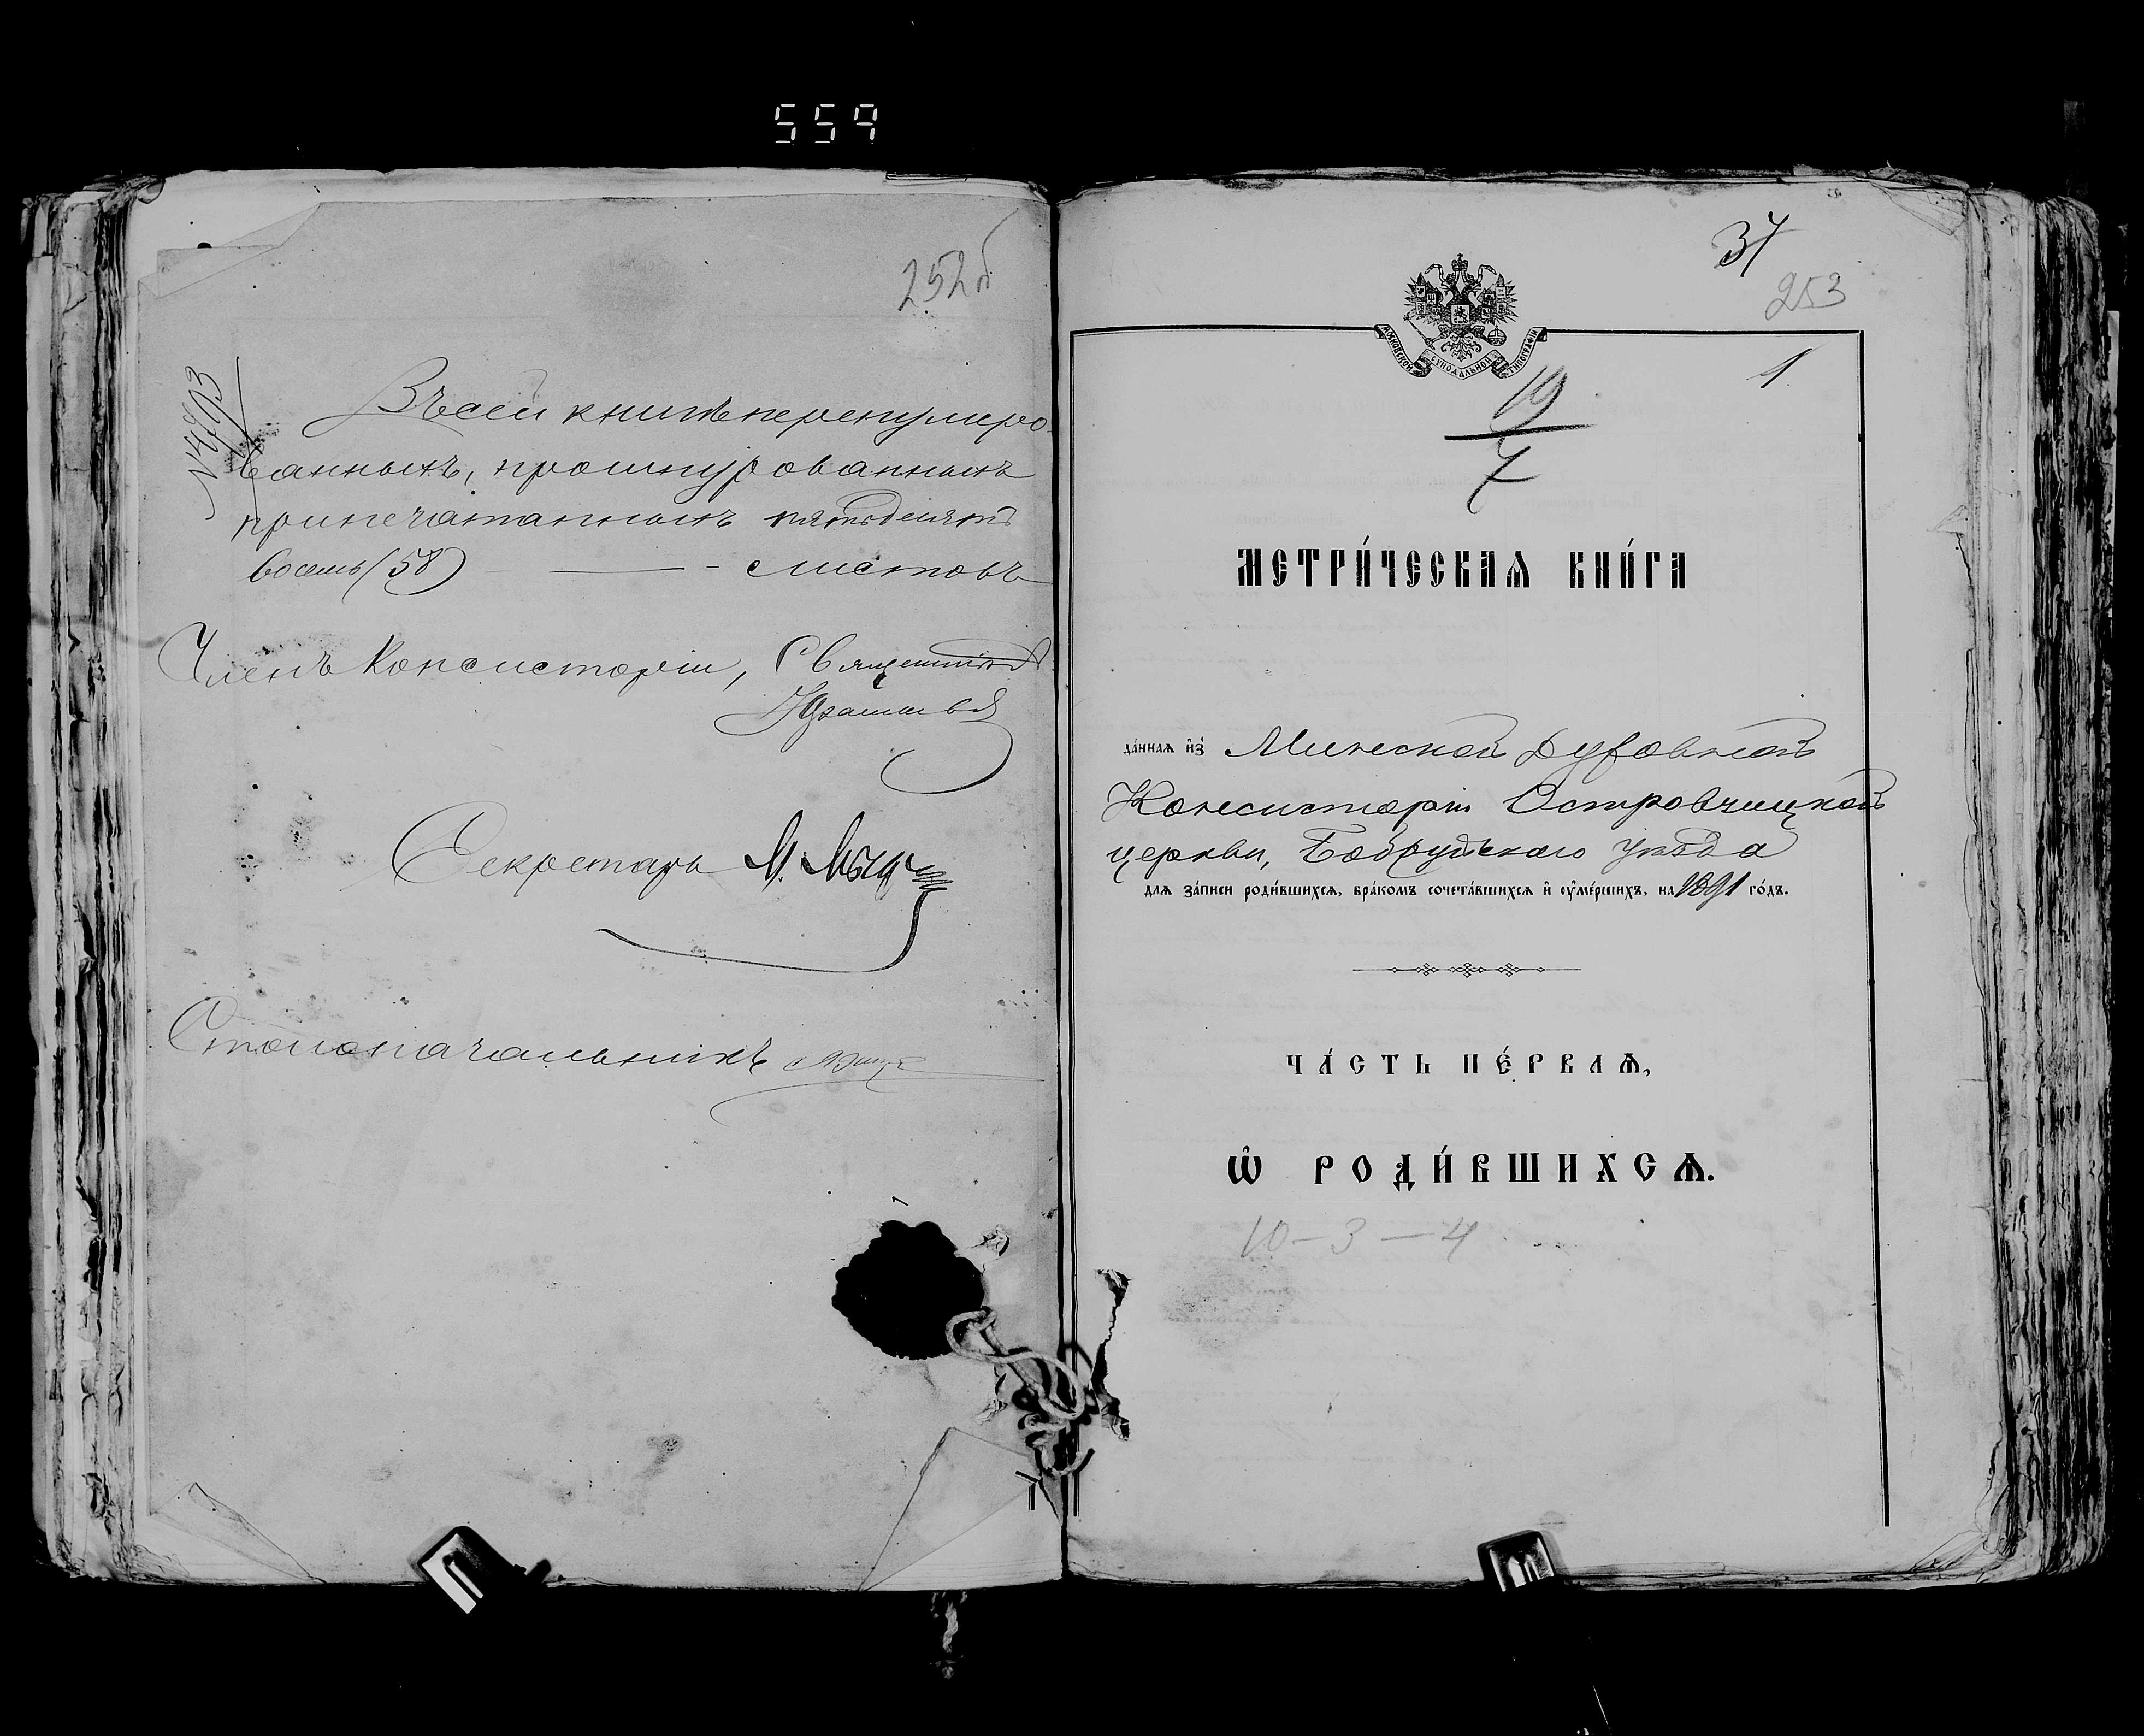 559
252б
№ 4703
Въ сей книгѣ перенумеро-
ванныхъ, прошнурованныхъ
припечатанныхъ пятьдесятъ
восемь (58) — листовъ
Членъ Консисторіи, Священникъ
Секретарь
Столоначальникъ
37
253
1
МОСКОВСКОЙ СУНОДАЛЬНОЙ ТИПОГРАФІИ
19
7
МЕТРИ́ЧЕСКАѦ КНИ́ГА
да́ннаѧ и҆з̾ Минской Духовной
Консисторіи Островчицкой
церкви, Бобруйскаго уѣзда
длѧ за́писи роди́вшихсѧ, бра́комъ сочета́вшихсѧ и҆ ᲂу҆ме́ршихъ, на 1891 го́дъ.
ЧА́СТЬ ПЕ́РВАѦ,
Ѽ РОДИ́ВШИХСѦ.
10 — 3 — 4